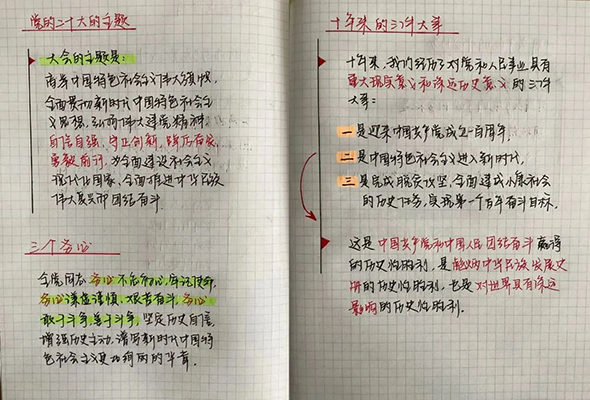 党的二十大的主题
大会的主题是:
高举中国特色社会主义伟大旗帜,
全面贯彻新时代中国特色社会主
义思想,弘扬伟大建党精神,
自信自强、守正创新,踔厉奋发、
勇毅前行,为全面建设社会主义
现代化国家、全面推进中华民族
伟大复兴而团结奋斗。
三个务必
全党同志务必不忘初心、牢记使命,
务必谦虚谨慎、艰苦奋斗,务必
敢于斗争、善于斗争,坚定历史自信,
增强历史主动,谱写新时代中国特
色社会主义更加绚丽的华章。
十年来的三件大事
十年来,我们经历了对党和人民事业具有
重大现实意义和深远历史意义的三件
大事:
一是迎来中国共产党成立一百周年,
二是中国特色社会主义进入新时代,
三是完成脱贫攻坚、全面建成小康社会
的历史任务,实现第一个百年奋斗目标。
这是中国共产党和中国人民团结奋斗赢得
的历史性胜利,是彪炳中华民族发展史
册的历史性胜利,也是对世界具有深远
影响的历史性胜利。